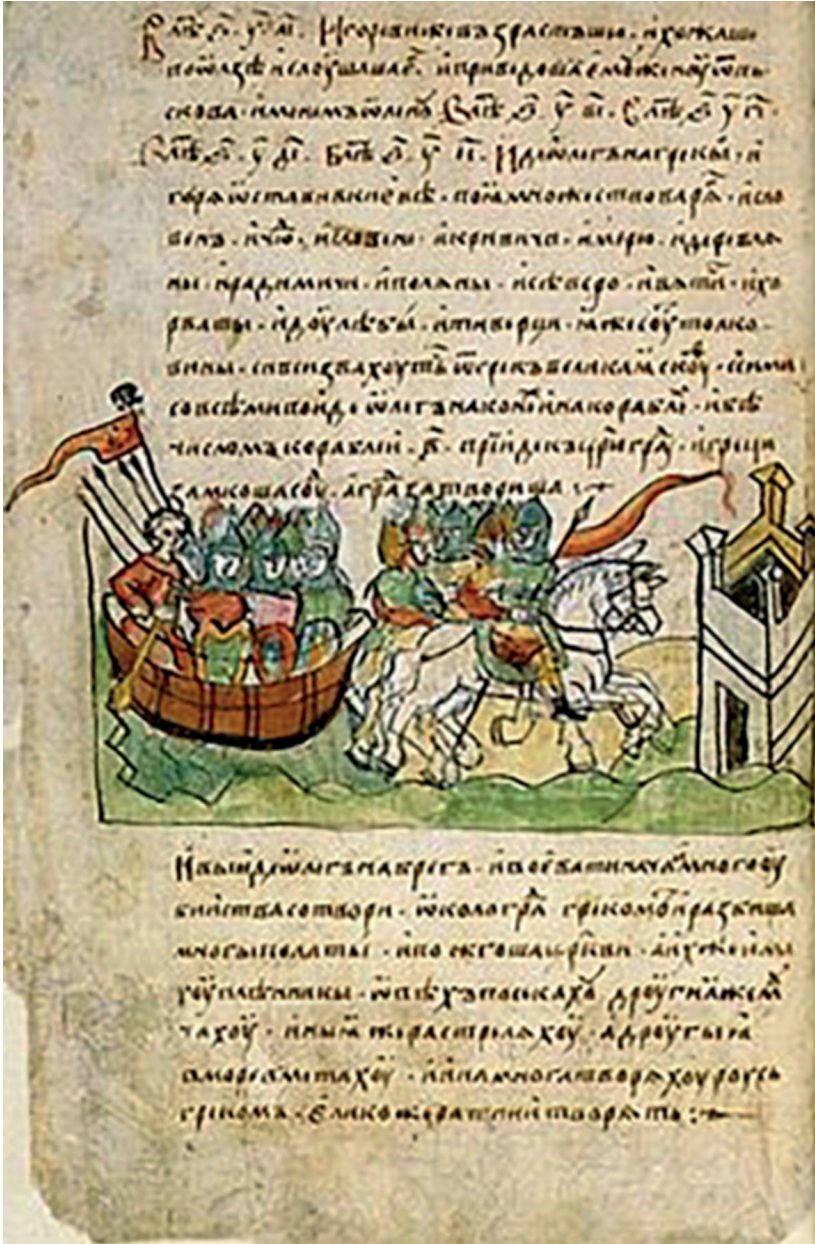 В лѣⷮ ҂ѕ҃ · у҃ · а҃і · Игореви же възрастъшю · и хожаше
по ѡлзѣ и слоушашеⷮ · и приведоша емоу женоу ѿ пь
скова · именемъ ѡленоу В лѣⷮ ҂ѕ҃ · у҃ · в҃і · В лѣⷮ ҂ѕ҃ у҃ г҃і ·
В лѣⷮ ҂ѕ҃ · у҃ д҃і · В лѣⷮ ҂ѕ҃ · у҃ · е҃і · Иде ѡлегъ на грекы · и
горя ѡстави в киевѣ · поя множество варяⷢ · и сло
венъ · и чюⷣ · и словене · и кривичи · и мерю · и деревля
ны · и радимичи · и поляны · и сѣверо · и вятичи · и хо
рваты · и доулѣбы · и тиверци · яже соуть толко
вины · си вси звахоуть ѿ грекъ великая скоуⷴ · с сими
со всѣми поиде ѡлегъ на конⷯ и на кораблⷯ · и бѣ
числомъ кораблей · в҃ · прїиде къ црⷭюградоу · и греци
замкоша соуⷣ · а граⷣ затвориша
И выиде ѡлегъ на брегъ · и воевати нача и много оу
бийства сотвори · ѡколо граⷣ грекомъ и разбиша
многы полаты · и пожгоша церкви · а ихже има
хоу плѣнникы · ѡвѣхъ посекахоу дроугиа же моу
чахоу · иныя же растреляхоу · а дроугыя
в море вметахоу · и ина многа творяхоу роусь
грекомъ · елико же ратнии творять